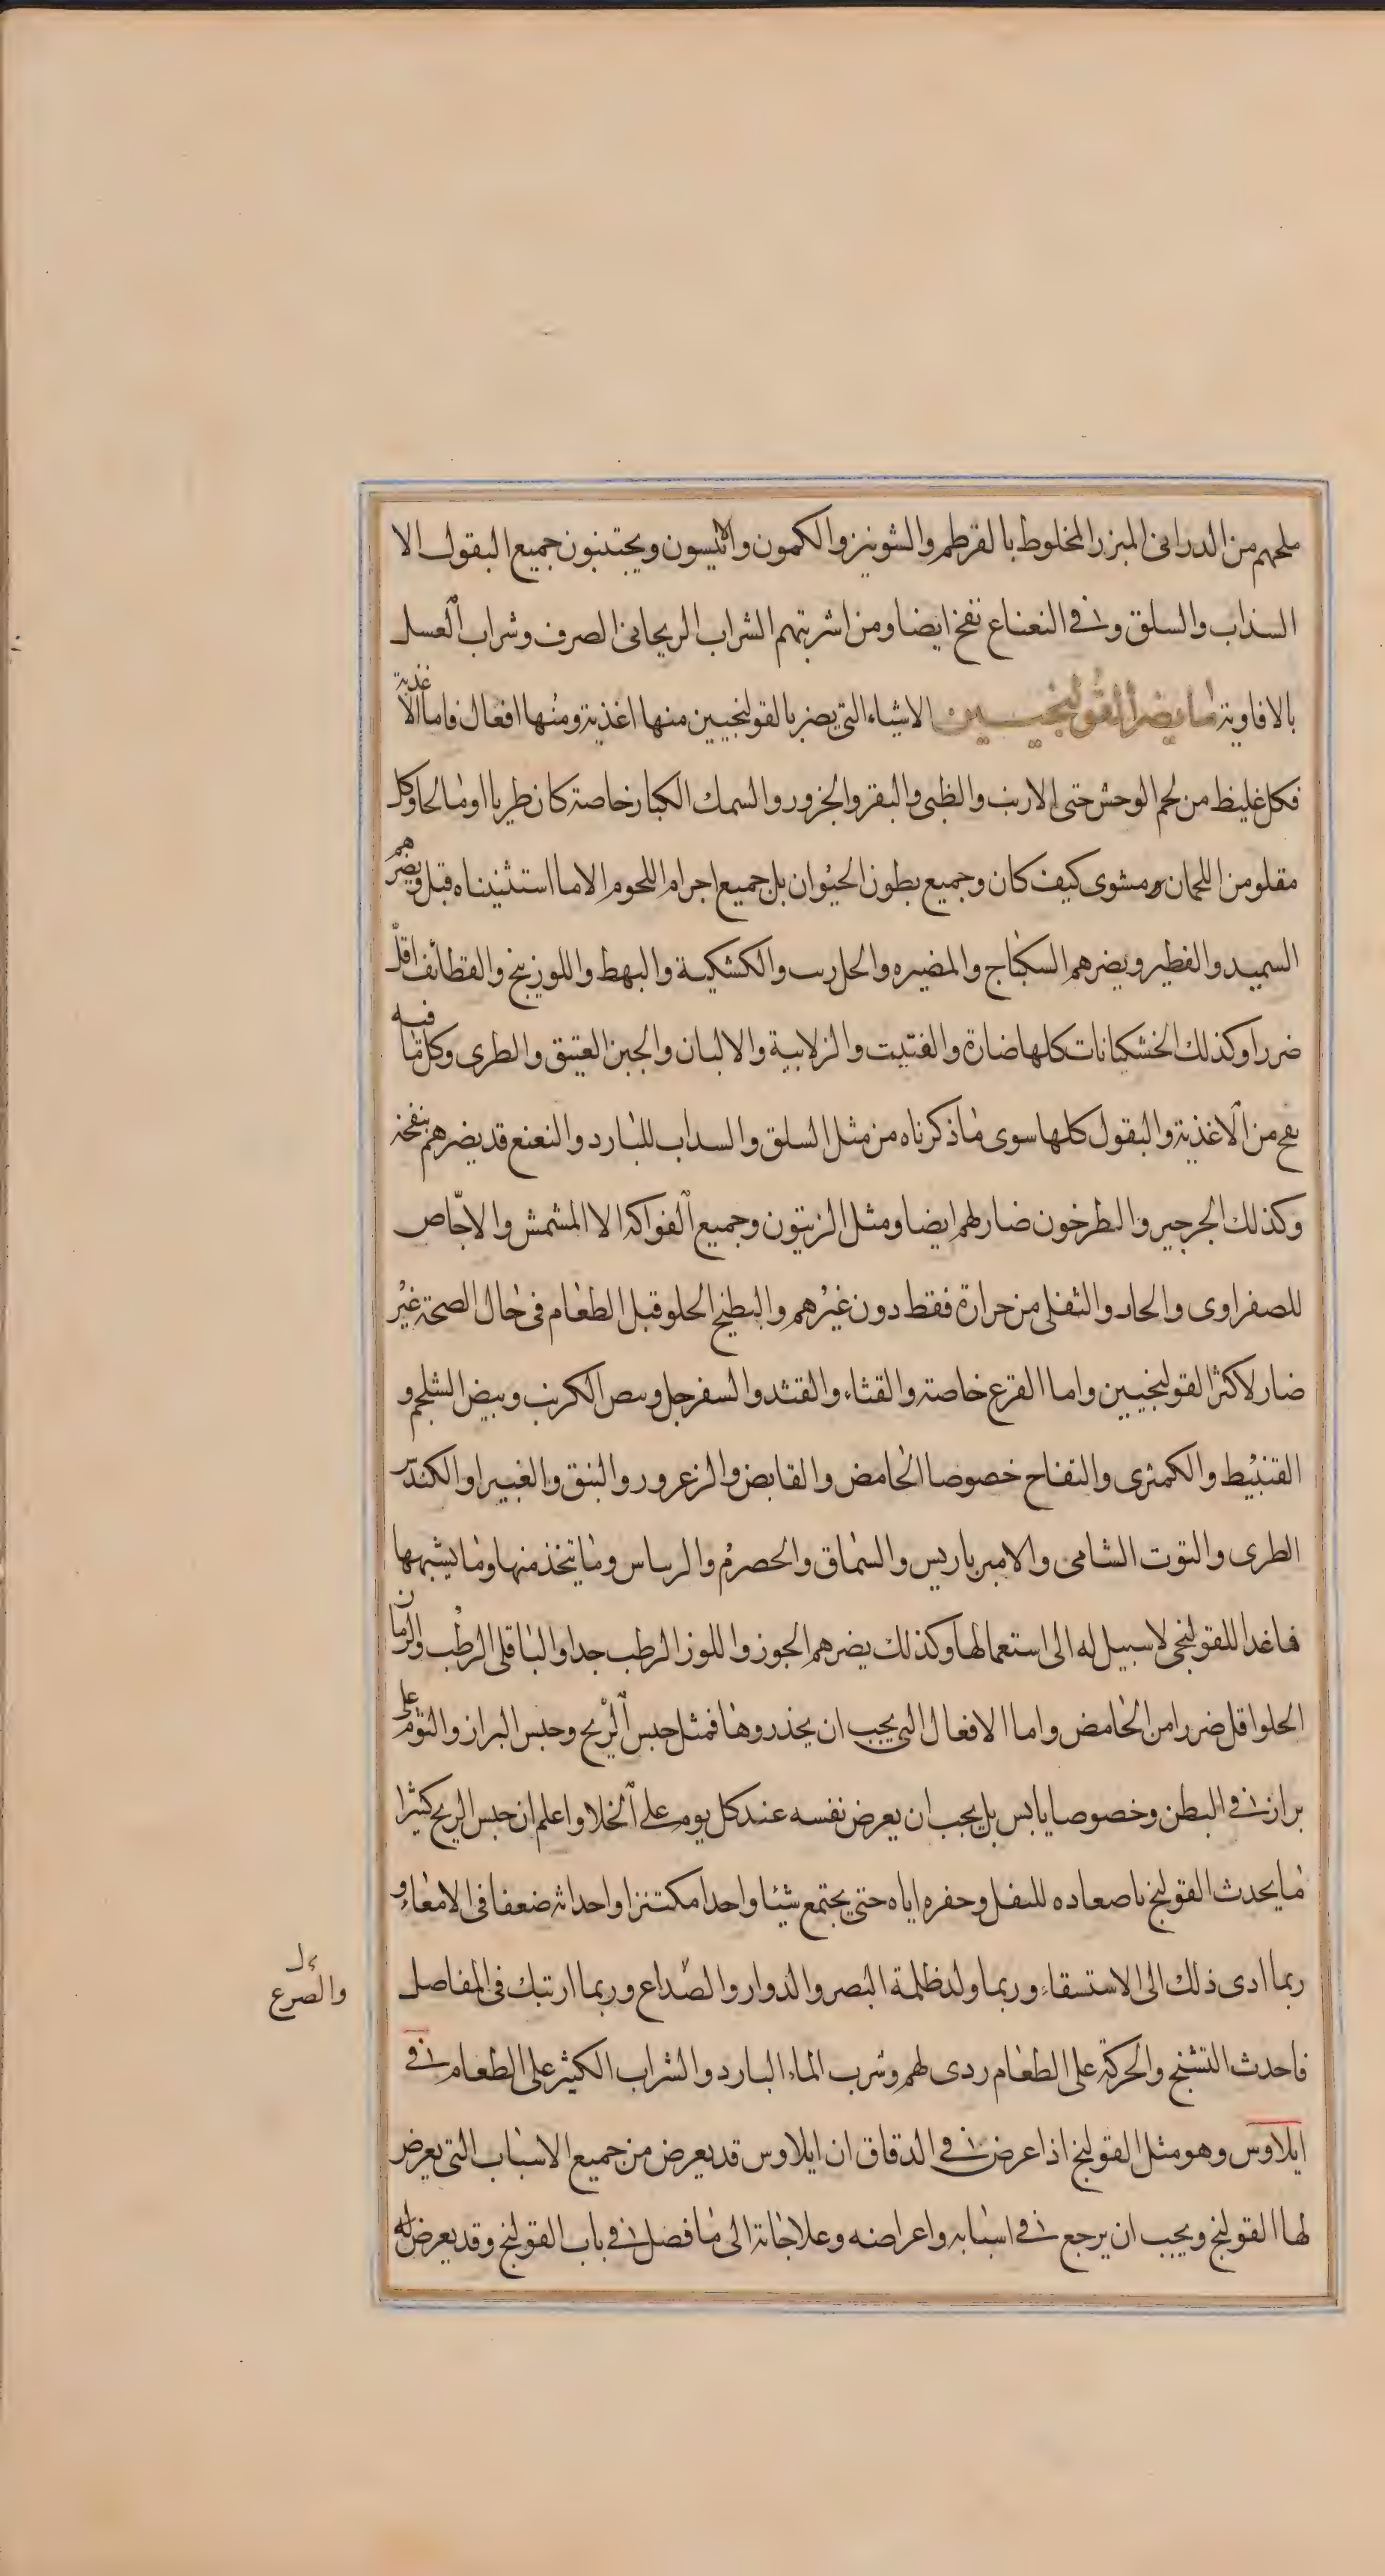 ملحهم من الدرانى المبزر المخلوط بالقرطم والشونيز والكمون والانيسون ويجتنبون جميع البقول الا
السذاب والسلق وفى النعناع نفخ ايضا ومن اشربتهم الشراب الريحانى الصرف وشراب العسل
بالافاوية ما يضر القولنجيين الاشياء التى يضر بالقولنجيين منها اغذية ومنها افعال فاما الاغذية
فكل غليظ من لحم الوحش حتى الارنب والظبى والبقر والجزور والسمك الكبار خاصة كان طريا او مالحا وكل
مقلو من اللحمان ومشوى كيف كان وجميع بطون الحيوان بل جميع اجرام اللحوم الا ما استثنيناه قبل ويضرهم
السميد والفطير ويضرهم السكباج والمضيره والحل ريب والكشكية والبهط واللوزينج والقطائف اقل
ضررا وكذلك الخشكنانات كلها ضارة والفتيت والزلابية والالبان والجبن العتيق والطرى وكل ما فيه
نفخ من الاغذية والبقول كلها سوى ما ذكرناه من مثل السلق والسداب للبارد والنعنع قد يضرهم بنفخه
وكذلك الجرجير والطرخون ضار لهم ايضا ومثل الزيتون وجميع الفواكه الا المشمش والاجّاص
للصفراوى والحار والثفلى من حرارة فقط دون غيرهم والبطيخ الحلو قبل الطعام فى حال الصحة غير
ضار لاكثر القولنجيين واما القرع خاصة والقثاء والقثد والسفرجل وبيض الكرنب وبيض الشلجم و
القنبيط والكمثرى والتفاح خصوصا الحامض والقابض والزعرور والنبق والغبيرا والكندر
الطرى والتوت الشامى والامبرباريس والسماق والحصرم والرساس وما يتخذ منها وما يشبهها
فاغدا للقولنجى لا سبيل له الى استعمالها وكذلك يضرهم الجوز واللوز الرطب جدا والباقلى الرطب والرمان
الحلو اقل ضررا من الحامض واما الافعال التى يجب ان يحذروها فمثل حبس الريح وحبس البراز والنوم على
براز فى البطن وخصوصا يابس بل يجب ان يعرض نفسه عند كل يوم على الخلا واعلم ان حبس الريح كثيرا
ما يحدث القولنج باصعاده للثفل وحفره اياه حتى يجتمع شيئا واحدا مكتنزا واحداثه ضعفا فى الامعاء و
ربما ادى ذلك الى الاستسقاء وربما ولد ظلمة البصر والدوار والصداع وربما ارتبك فى المفاصل
والصرع
فاحدث التشنج والحركة على الطعام ردى لهم وشرب الماء البارد والشراب الكثير على الطعام فى
ايلاوس وهو مثل القولنج اذا عرض فى الدقاق ان ايلاوس قد يعرض من جميع الاسباب التى يعرض
لها القولنج ويجب ان يرجع فى اسبابه واعراضه وعلاجاته الى ما فصل فى باب القولنج وقد يعرض له